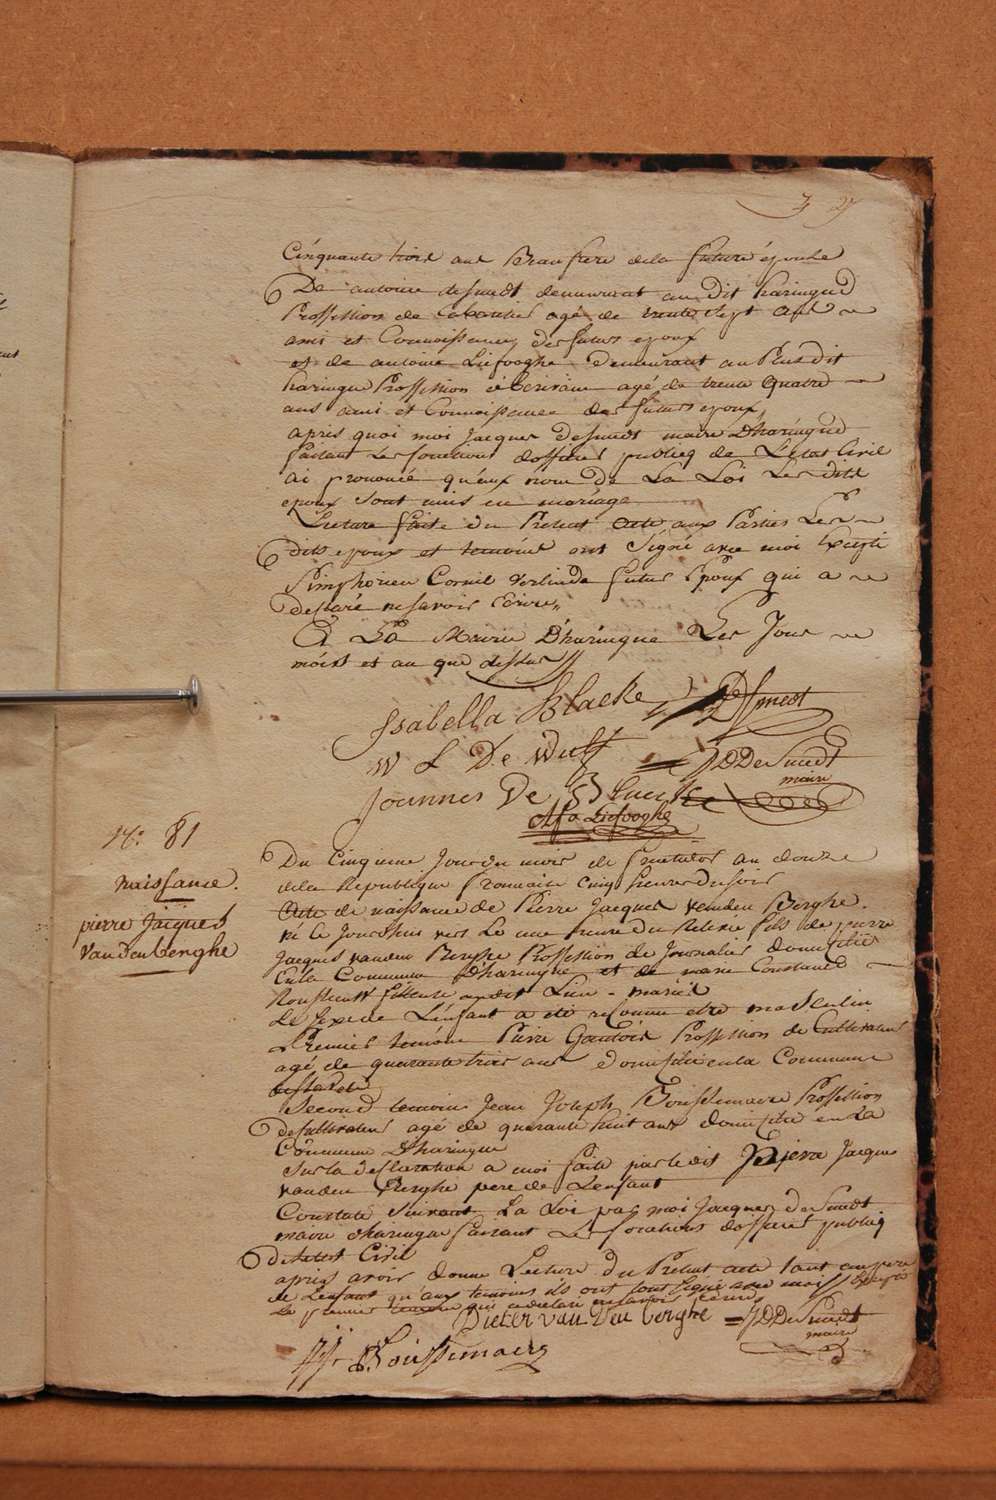 Cinquante trois ans Beau frere dela future épouse
De antoine desmedt demeurant au dit haringue
Proffession de Cabartier agé de trente Sept ans
ami et Connoissance des futurs epoux
et de antoine Liefooghe demeurant au Plus dit
haringue Proffession écrivain agé de trente quatre
ans ami et Connoissance des futurs epoux,
apris quoi moi Jacques Desmedt maire Dharingue
faisant Les fonctions dofficier publicq de L'Etat Civil
ai prononcé qu'aux nom de La Loi Les dits
epoux Sont unis en mariage
Lecture faite du Present acte aux Parties Les
dits epoux et temoins ont Signé avec moi Excepté
Simphorien Cornil Verlinde futur Epoux qui a
declaré ne savoir Ecrire,,
A La Mairie D'haringue Les Jour
mois et an que dessus
Isabella Blacke DeSmedt
W L De Wulf JDDeSmedt
maire
Joannes De
Afo Liefooghe
No: 81
naissance.
pierre Jacques
VanDenberghe
Du Cinqieme Jour du mois de fructidor an douze
dela Republique francaise cinq heures du soir
Acte de naissance de Pierre Jacques vanden Berghe.
né le Jourdhui vers Le une heure du fils de pierre
Jacques vanden Berghe Proffession de Journalier domicilié
En la Commune Dharingue et de marie Constance
fileuse au dit Lieu - mariés
Le Sexe de L'enfant a été reconnu etre masculin
Premier temoin Piere Proffession de Cultivateur
agé de quarante trois ans domicilié en la Commune
Second temoin Jean Joseph Boussemaere Proffession
de Cultivateur agé de quarante huit ans domicilié en La
Commune Dharingue
Sur la declaration a moi faite par le dit piere Jacques
vanden Berghe pere de Lenfant
Constaté Suivant La Loi par moi Jacques de Smedt
maire dharingue faisant Les fonctions dofficier publicq
de Letat Civil
apris avoir donne Lecture du Present acte tant au pere
de Lenfant qu'aux temoins ils ont tous signé avec moi Excepte
Le premier temoin qui a declaré ne savoir ecrire
Pieter van Den berghe JDDeSmedt
maire
JJ Boussemaere